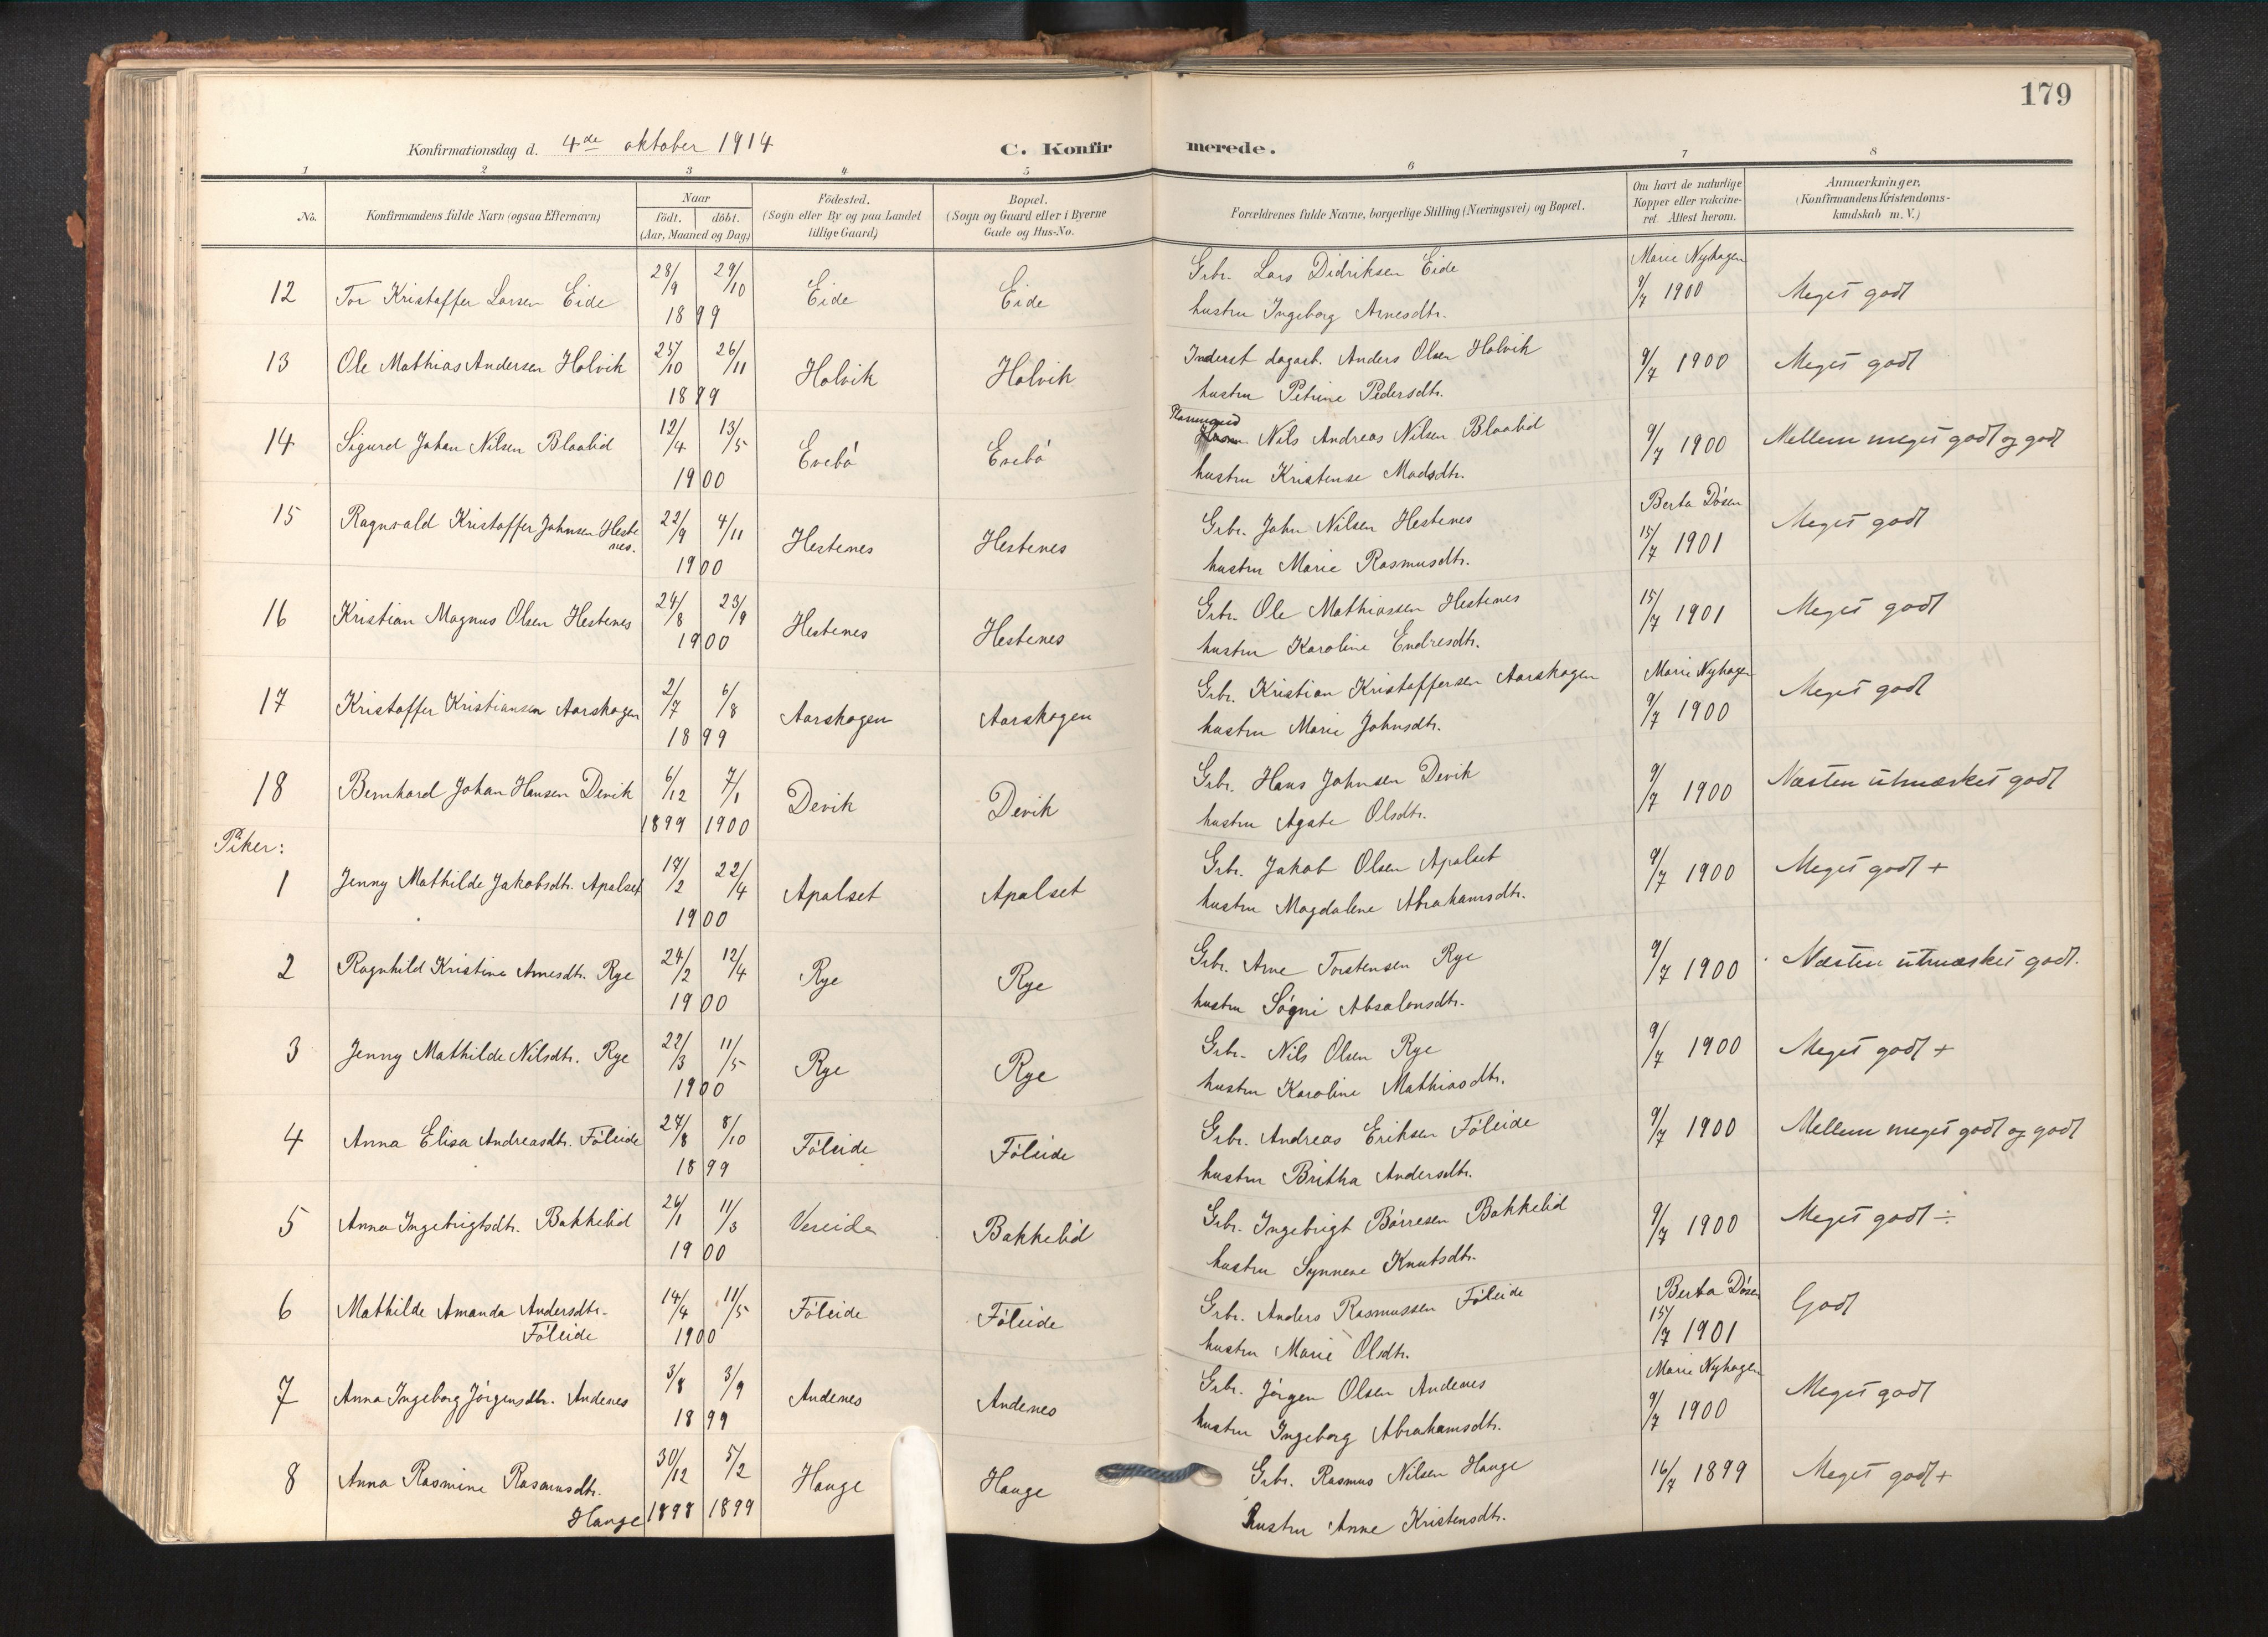 179
Konfirmationsdag d. 4de oktober 1914
C. Konfirmerede.
1 2 3 4 5 6 7 8
No. Konfirmandens fulde Navn (ogsaa Efternavn) Naar født. døbt. (Aar, Maaned og Dag) Fødested. (Sogn eller By og paa Landet tillige Gaard) Bopæl. (Sogn og Gaard eller i Byerne Gade og Hus-No. Forældrenes fulde Navne, borgerlige Stilling (Næringsvei) og Bopæl. Om havt de naturlige Kopper eller vaccineret Attest herom. Anmærkninger. (Konfirmandens Kristendomskundskab m. V.)
12 Tor Kristoffer Larsen Eide 28/9 29/10 1899 Eide Eide Grbr. Lars Didriksen Eide Marie Nyhagen 9/7 1900 Meget godt
hustru Ingeborg Arnesdtr.
13 Ole Mathias Andersen Holvik 25/10 26/11 1899 Holvik Holvik Inderst dagarb. Anders Olsen Holvik 9/7 1900 Meget godt
hustru Petrine Pedersdtr.
14 Sigurd Johan Nilsen Blaalid 12/4 13/5 1900 Evebø Evebø Nils Andreas Nilsen Blaalid 9/7 1900 Mellem meget godt og godt
hustru Kristense Madsdtr.
15 Ragnvald Kristoffer Johnsen Hestenes. 22/9 4/11 1900 Hestenes Hestenes Grbr. John Nilsen Hestenes Berta Døsen 15/7 1901 Meget godt
hustru Marie Rasmusdtr.
16 Kristian Magnus Olsen Hestenes 24/8 23/9 1900 Hestenes Hestenes Grbr. Ole Mathiassen Hestenes 15/7 1901 Meget godt
hustru Karoline Endresdtr.
17 Kristoffer Kristiansen Aarskogen 2/7 6/8 1899 Aarskogen Aarskogen Grbr. Kristian Kristoffersen Aarskogen Marie Nyhagen 9/7 1900 Meget godt
hustru Marie Johnsdtr.
18 Bernhard Johan Hansen Devik 6/12 7/1 1899 1900 Devik Devik Grbr. Hans Johnsen Devik 9/7 1900 Næsten utmerket godt
hustru Agate Olsdtr.
Piker:
1 Jenny Mathilde Jakobsdtr. Apalset 17/2 22/4 1900 Apalset Apalset Grbr. Jakob Olsen Apalset 9/7 1900 Meget godt +
hustru Magdalene Abrahamsdtr.
2 Ragnhild Kristine Arnesdtr. Rye 24/2 12/4 1900 Rye Rye Grbr. Arne Torstensen Rye 9/7 1900 Næsten utmerket godt.
hustru Søgni Absalonsdtr.
3 Jenny Mathilde Nilsdtr. Rye 22/3 11/5 1900 Rye Rye Grbr. Nils Olsen Rye 9/7 1900 Meget godt +
hustru Karoline Mathiasdtr.
4 Anna Elisa Andreasdtr. Føleide 27/8 8/10 1899 Føleide Føleide Grbr. Andreas Eriksen Føleide 9/7 1900 Mellem meget godt og godt
hustru Britha Andersdtr.
5 Anna Ingebrigtsdtr. Bakkelid 26/1 11/3 1900 Vereide Bakkelid Grbr. Ingebrigt Børresen Bakkelid 9/7 1900 Meget godt ÷
hustru Synneve Knutsdtr.
6 Mathilde Amanda Andersdtr. Føleide 14/4 11/5 1900 Føleide Føleide Grbr. Anders Rasmussen Føleide Berta Døsen 15/7 1901 Godt
hustru Marie Olsdtr.
7 Anna Ingeborg Jørgensdtr. Andenes 3/8 3/9 1899 Andenes Andenes Grbr. Jørgen Olsen Andenes Marie Nyhagen 9/7 1900 Meget godt
hustru Ingeborg Abrahamsdtr.
8 Anna Rasmine Rasmusdtr. Hauge 30/12 5/2 1898 1899 Hauge Hauge Grbr. Rasmus Nilsen Hauge 16/7 1899 Meget godt +
hustru Anne Kristensdtr.